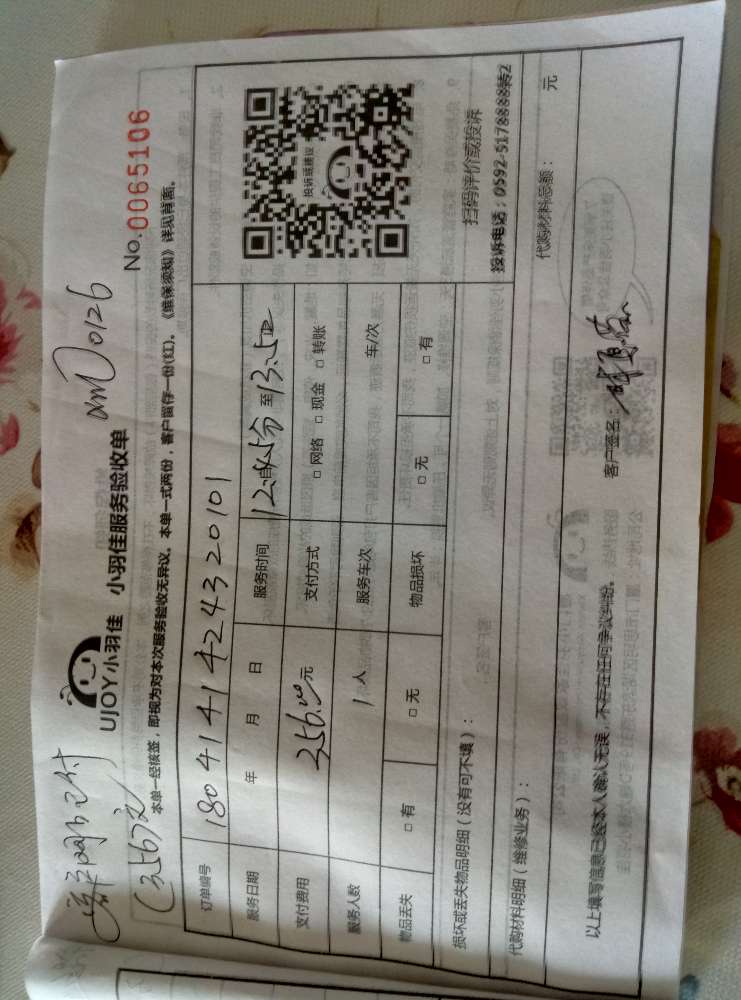 网约已付
(356元)
0126
UJOY小羽佳 小羽佳服务验收单
No.0065106
本单一经核签，即视为对本次服务验收无异议。本单一式两份，客户留存一份(红)。《维保须知》详见背面。
订单编号 1804141424320101
服务日期 年 月 日 服务时间 至13:50
支付费用 356.00元 支付方式 □网络 □现金 □转账
服务人数 1人 服务车次 车/次
物品丢失 □有 □无 物品损坏 □无 □有
投诉或建议
扫码评价或投诉
投诉电话：0592-5178888转2
损坏或丢失物品明细（没有可不填）：
代购材料明细（维修业务）： 代购材料总额： 元
以上填写信息已经本人确认无误，不存在任何争议纠纷。 客户签名：